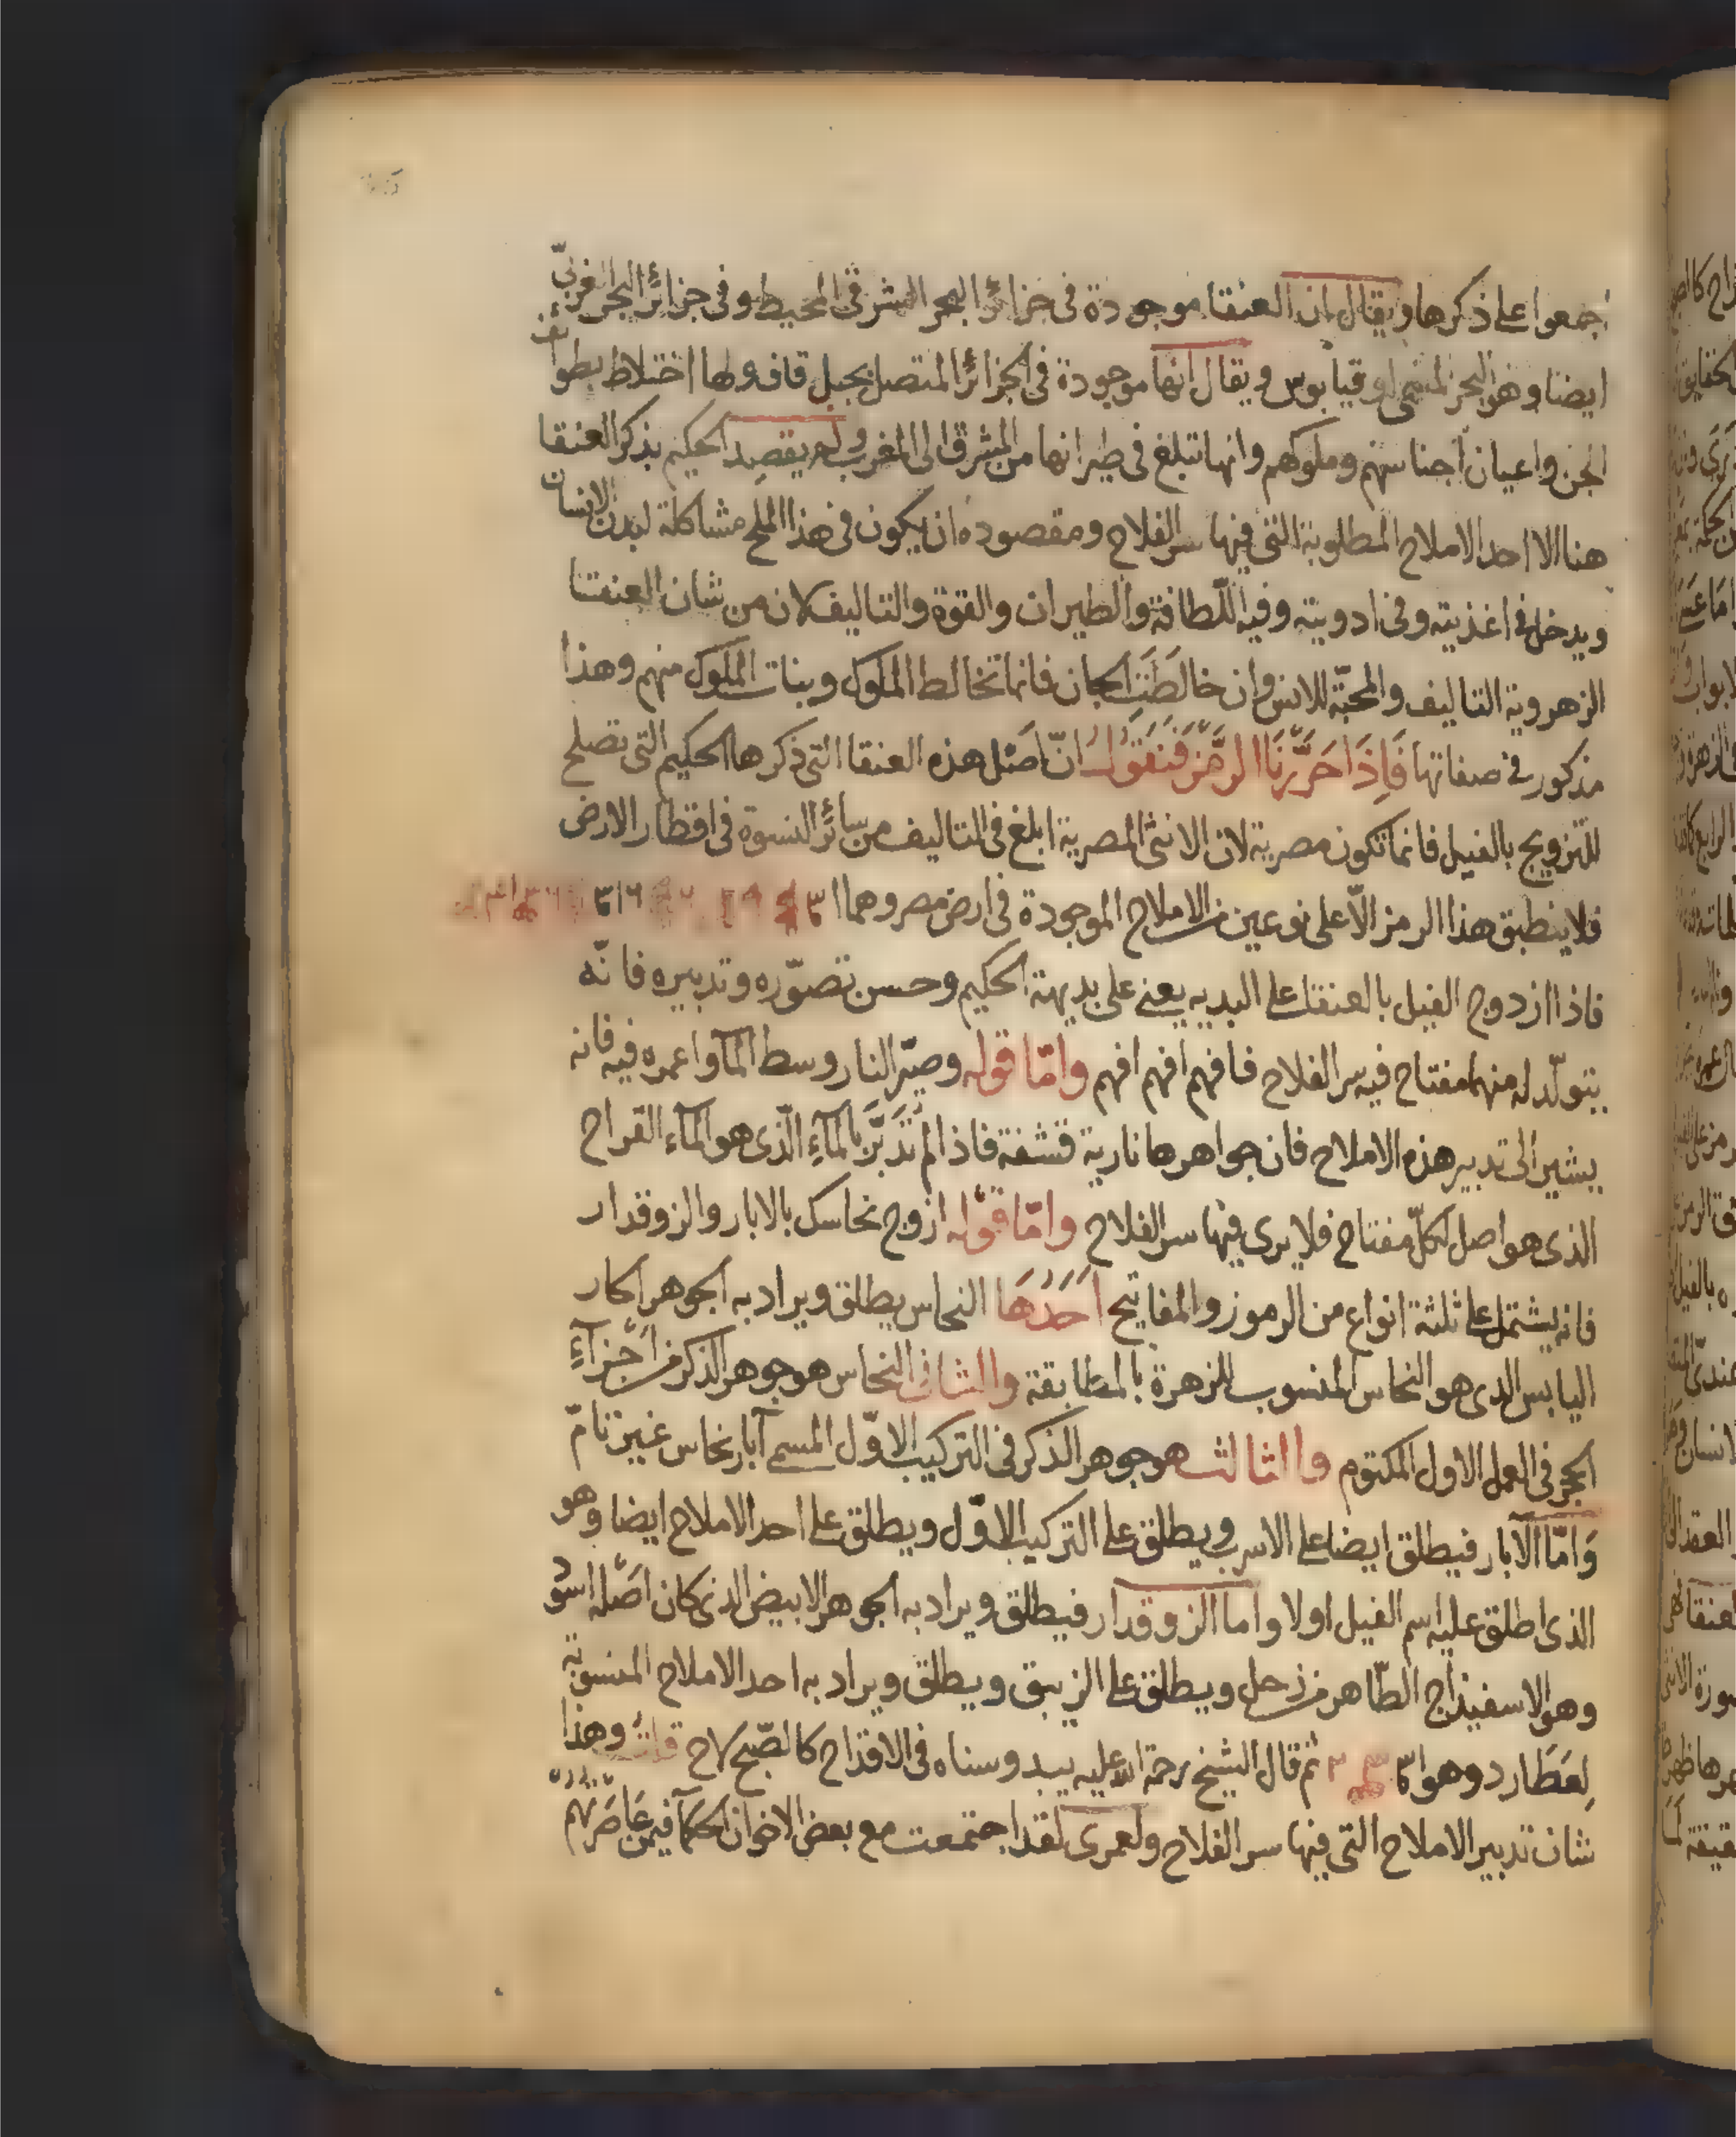 اجمعوا على ذكرها ويقال ان العنقا موجودة فى جزائر البحر المشرقى المحيط وفى جزائر البحر الغربىّ
ايضا وهو البحر المسمى اوقيابوس ويقال انها موجودة فى الجزائر المتصل بجبل قاف ولها اختلاط بطوائف
الجن واعيان اجناسهم وملوكهم وانها تبلغ فى طيرانها من المشرق الى المغرب ولم يقصد الحكيم بذكر العنقا
هنا الا احد الاملاح المطلوبة التى فيها سر الفلاح ومقصوده ان يكون فى هذا الملح مشاكلة لبدن الانسان
ويدخل فى اغذيته وفى ادويته وفيه اللّطافة والطيران والقوة والتاليف لان من شان العنقا
الزهروية التاليف والمحبّة للانس وان خالَطَتِ الجان فانما تخالط الملوك وبنات الملوك منهم وهذا
مذكور فى صفاتها فَاِذَا حَرَّرْنَا الرَّمْزَ فَنَقُولُ انّ اصْل هذه العنقا التى ذكرها الحكيم التى تصلح
للتزويج بالفيل فانما تكون مصرية لان الانثى المصرية ابلغ فى التاليف من سائر النسوة فى اقطار الارض
فلا ينطبق هذا الرمز الّا على نوعين من الاملاح الموجودة فى ارض مصر وهما
فاذا ازدوج الفيل بالعنقا على البديه يعنى على بديهة الحكيم وحسن تصوّره وتدبيره فانّه
يتولّد له منهما مفتاح فيه سر الفلاح فافهم افهم افهم وامّا قوله وصيّر النار وسط المآ واعمره فيه فانه
يشير الى تدبير هذه الاملاح فان جواهرها نارية قشفة فاذا لم تُدَبَّر بالمآءِ الّذى هو المآء القراح
الذى هو اصل لكلّ مفتاح فلا يرى فيها سر الفلاح وامّا قوْله ازوج نحاسك بالابار والزوقدار
فانه يشتمل على ثلثة انواع من الرموز والمفاتيح اَحَدُهَا النحاس يطلق ويراد به الجوهر الحار
اليابس الذى هو النحاس المنسوب للزهرة بالمطابقة والثانى النحاس هو جوهر الذكر من اجْزآءِ
الحجر فى العمل الاول المكتوم والثالث هو جوهر الذكر فى التركيب الاوّل المسمى آبار نحاس غير تامّ
وَامّا الآبار فيطلق ايضا على الاسرب ويطلق على التركيب الاوّل ويطلق على احد الاملاح ايضا وهو
الذى اطلق عليه اسم الفيل اولا واما الزوقدار فيطلق ويراد به الجوهر الابيض الذى كان اصْله اسود
وهو الاسفيذاج الطّاهر من زحل ويطلق على الزيبق ويطلق ويراد به احد الاملاح المنسوبة
لِعَطَارد وهو ثم قال الشيخ رحمة الله عليه يبدو سناه فى الاقداح كالصّبح لاح قلت وهذا
شان تدبير الاملاح التى فيها سر الفلاح ولعمرى لقد اجتمعت مع بعض الاخوان الحكمآ فيمن عَاصَرَهُم